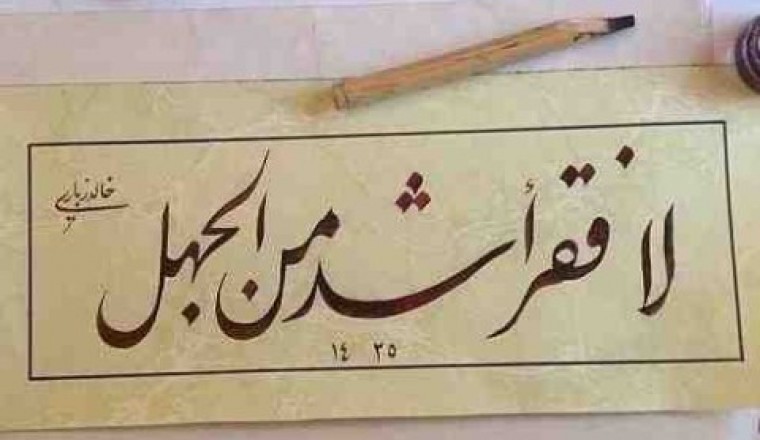 لا فقر أشد من الجهل
خالد زباري
١٤٣٥